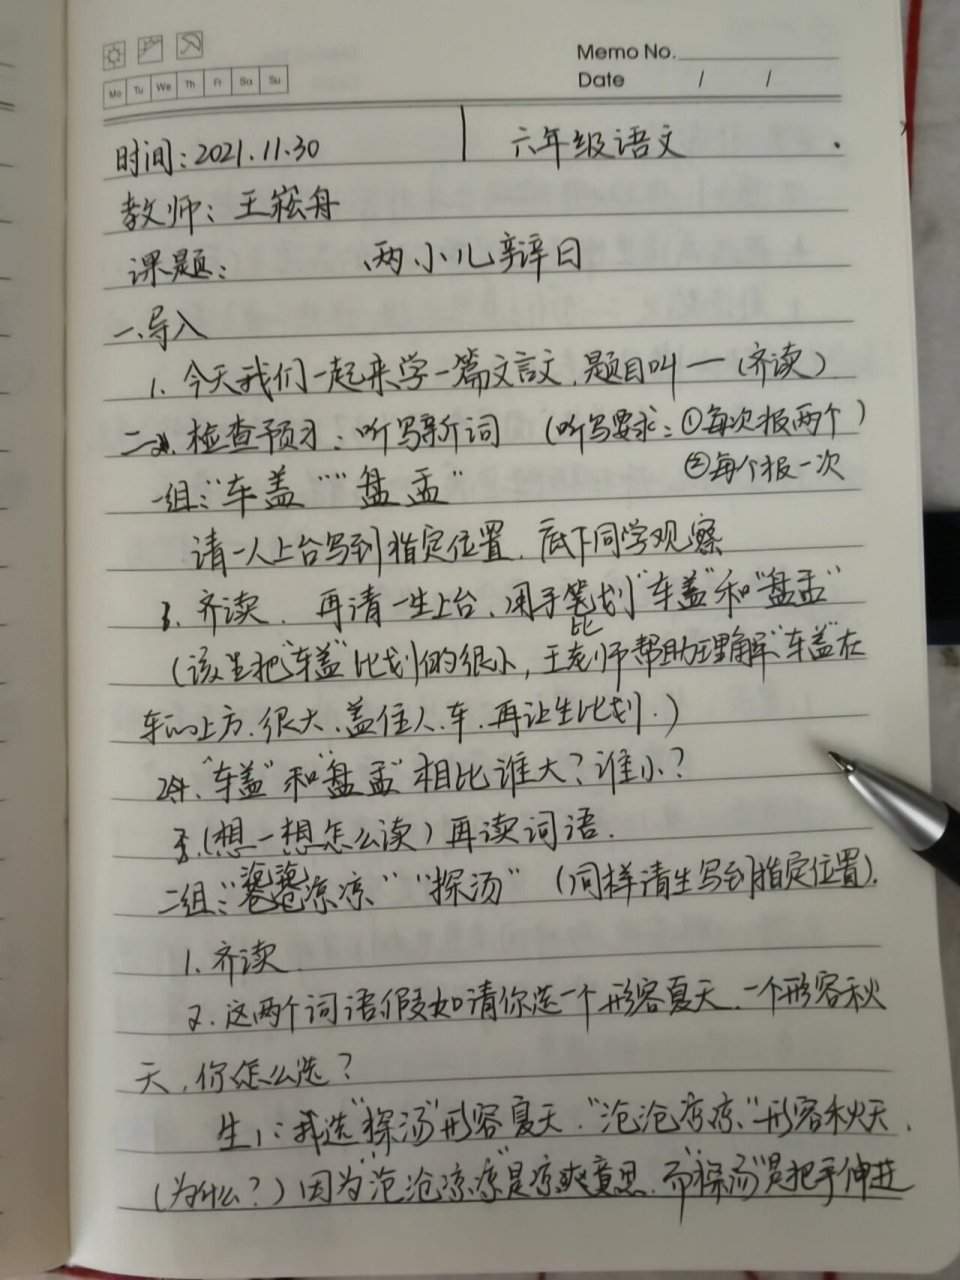 Mo Tu We Th Fr Sa Su
Memo No.
Date / /
时间:2021.11.30 六年级语文
教师:王崧舟
课题: 两小儿辩日
一、导入
1. 今天我们一起来学一篇文言文,题目叫一(齐读)
二、检查预习:听写新词 (听写要求:①每次报两个)
②每个报一次
一组:“车盖”“盘盂”
请一人上台写到指定位置,底下同学观察
齐读、再请一生上台,用手比划“车盖”和“盘盂”
(该生把“车盖”比划的很小,王老师帮助理解“车盖”在
车的上方、很大、盖住人、车,再让生比划.)
“车盖”和“盘盂”相比谁大?谁小?
(想一想怎么读)再读词语.
二组:“沧沧凉凉”“探汤”(同样请生写到指定位置).
1. 齐读
2. 这两个词语假如请你选一个形容夏天,一个形容秋
天,你怎么选?
生1:我选“探汤”形容夏天,“沧沧凉凉”形容秋天,
(为什么?)因为“沧沧凉凉”是凉爽意思,而“探汤”是把手伸进